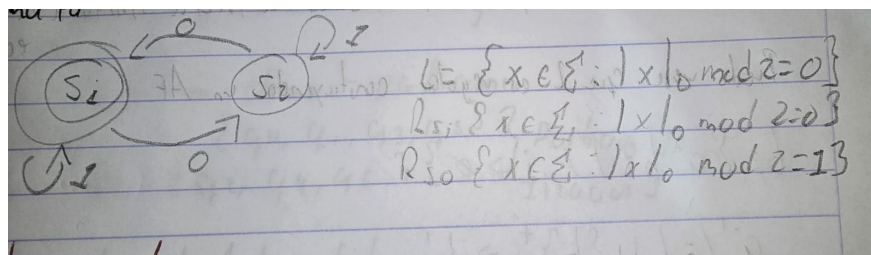 0
1
S₁ S₂ L = {x ∈ Σ : |x|₀ mod 2 = 0}
R_S₁ {x ∈ Σ : |x|₀ mod 2 = 0}
0
1 R_S₀ {x ∈ Σ : |x|₀ mod 2 = 1}